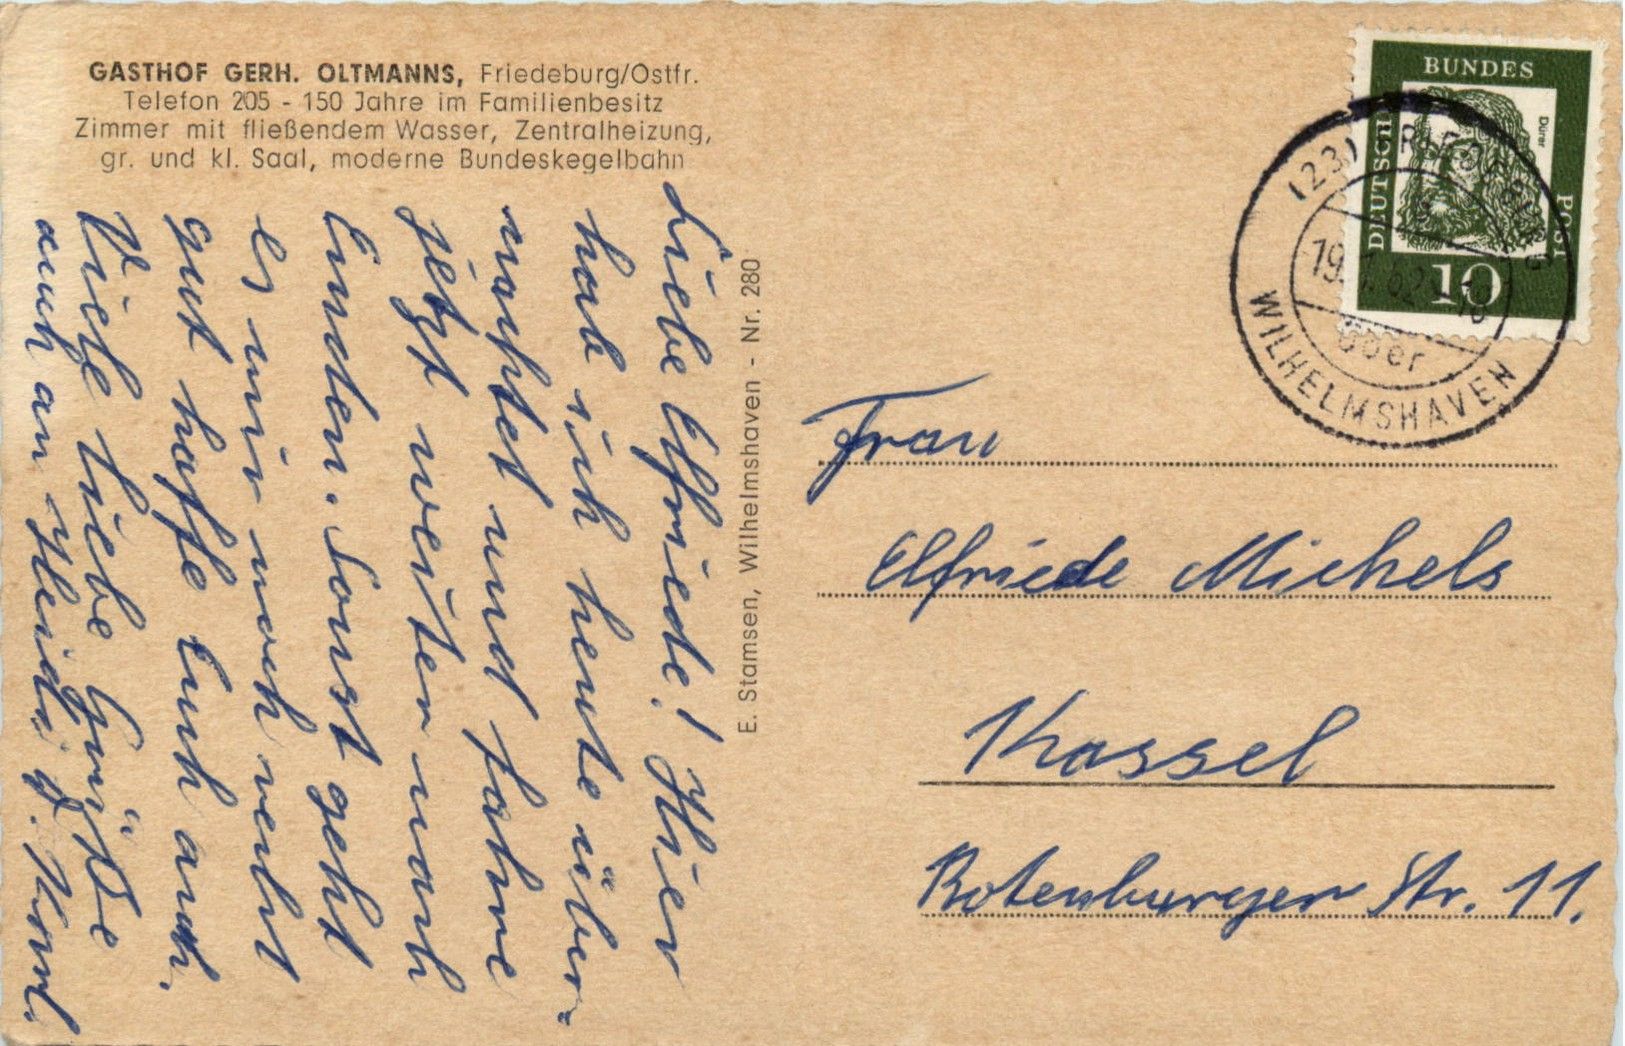 GASTHOF GERH. OLTMANNS, Friedeburg/Ostfr.
Telefon 205 - 150 Jahre im Familienbesitz
Zimmer mit fließendem Wasser, Zentralheizung,
gr. und kl. Saal, moderne Bundeskegelbahn
Liebe Elfriede! Hier
hab ich heute über-
nachtet und fahre
jetzt weiter nach
Emden. Sonst geht
es mir noch recht
gut hoffe Euch auch.
Viele liebe Grüße
auch an Heidi d. Karl.
E. Stamsen, Wilhelmshaven - Nr. 280
DEUTSCHE
BUNDES
POST
Dürer
10
(23) FRIEDEBURG
19. 62
über
WILHELMSHAVEN
Frau
Elfriede Michels
Kassel
Rotenburger Str. 11.